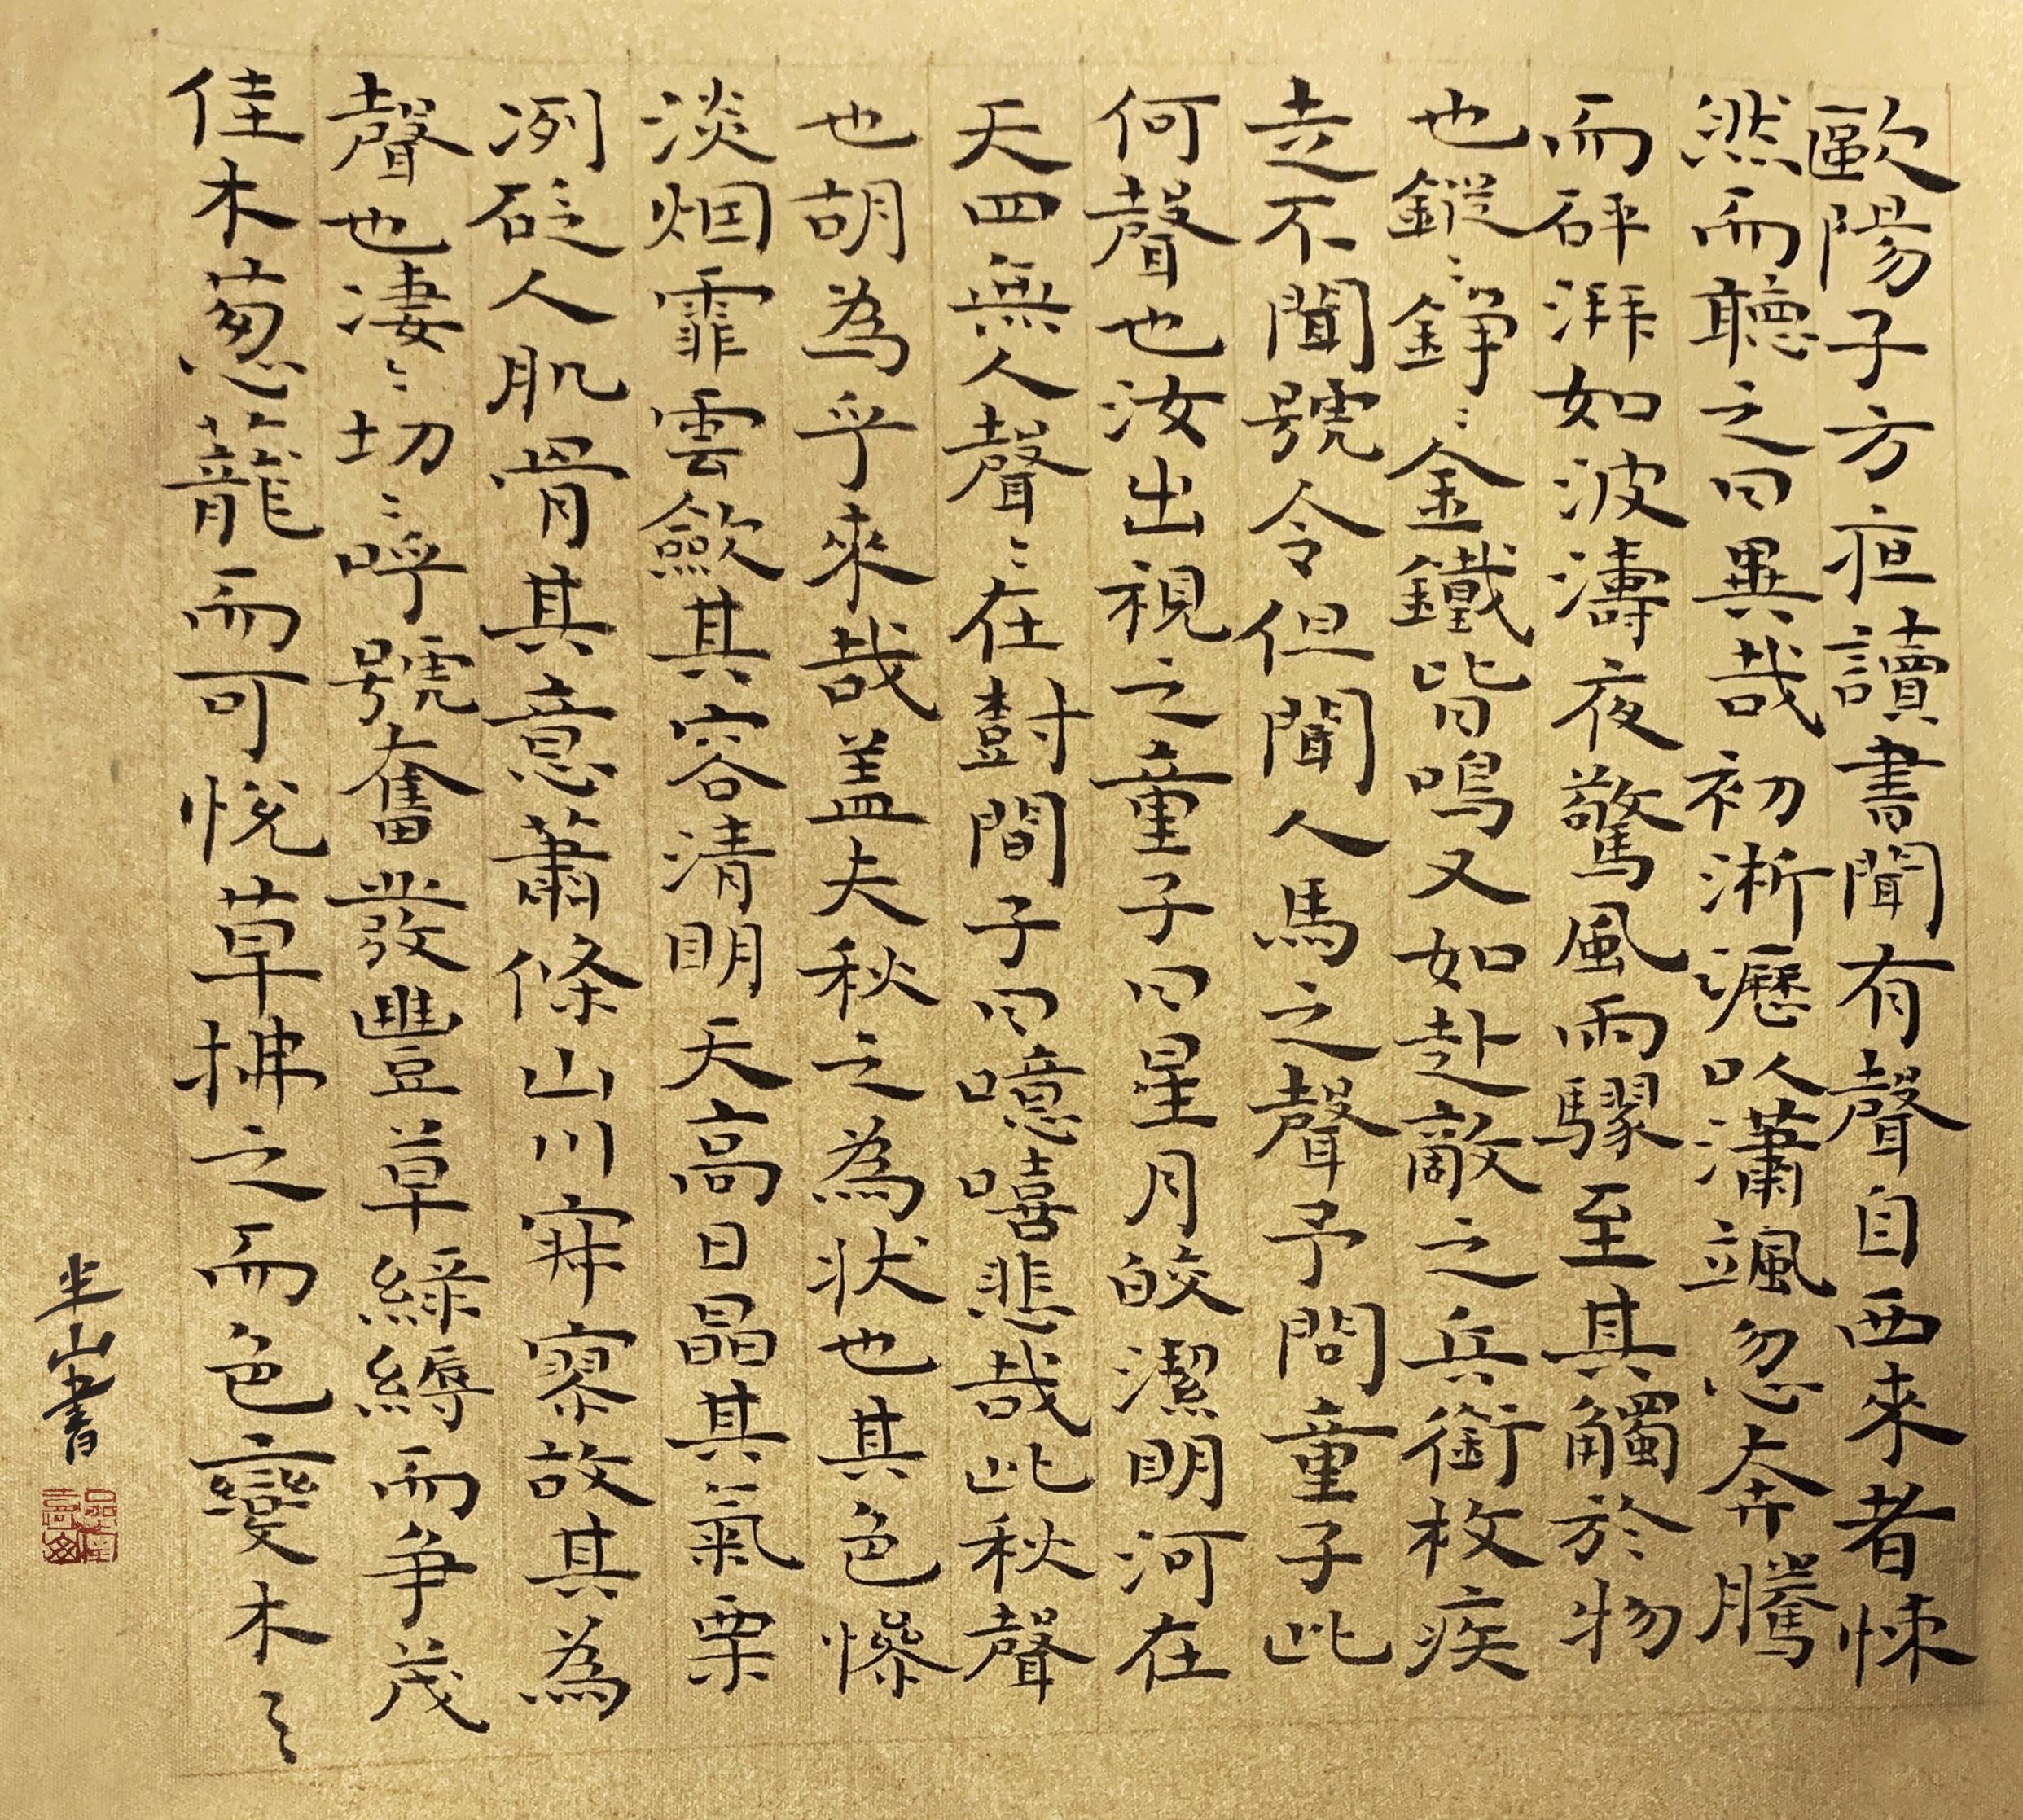 歐陽子方夜讀書聞有聲自西來者悚
然而聽之曰異哉初淅瀝以瀟颯忽奔騰
而砰湃如波濤夜驚風雨驟至其觸於物
也鏦〻錚〻金鐵皆鳴又如赴敵之兵銜枚疾
走不聞號令但聞人馬之聲予問童子此
何聲也汝出視之童子曰星月皎潔明河在
天四無人聲〻在樹間予曰噫嘻悲哉此秋聲
也胡為乎來哉盖夫秋之為状也其色慘
淡烟霏雲歛其容清明天高日晶其氣栗
冽砭人肌骨其意蕭條山川寂寥故其為
聲也凄〻切〻呼號奮發豐草綠縟而争茂
佳木葱蘢而可悅草拂之而色變木之
半山書